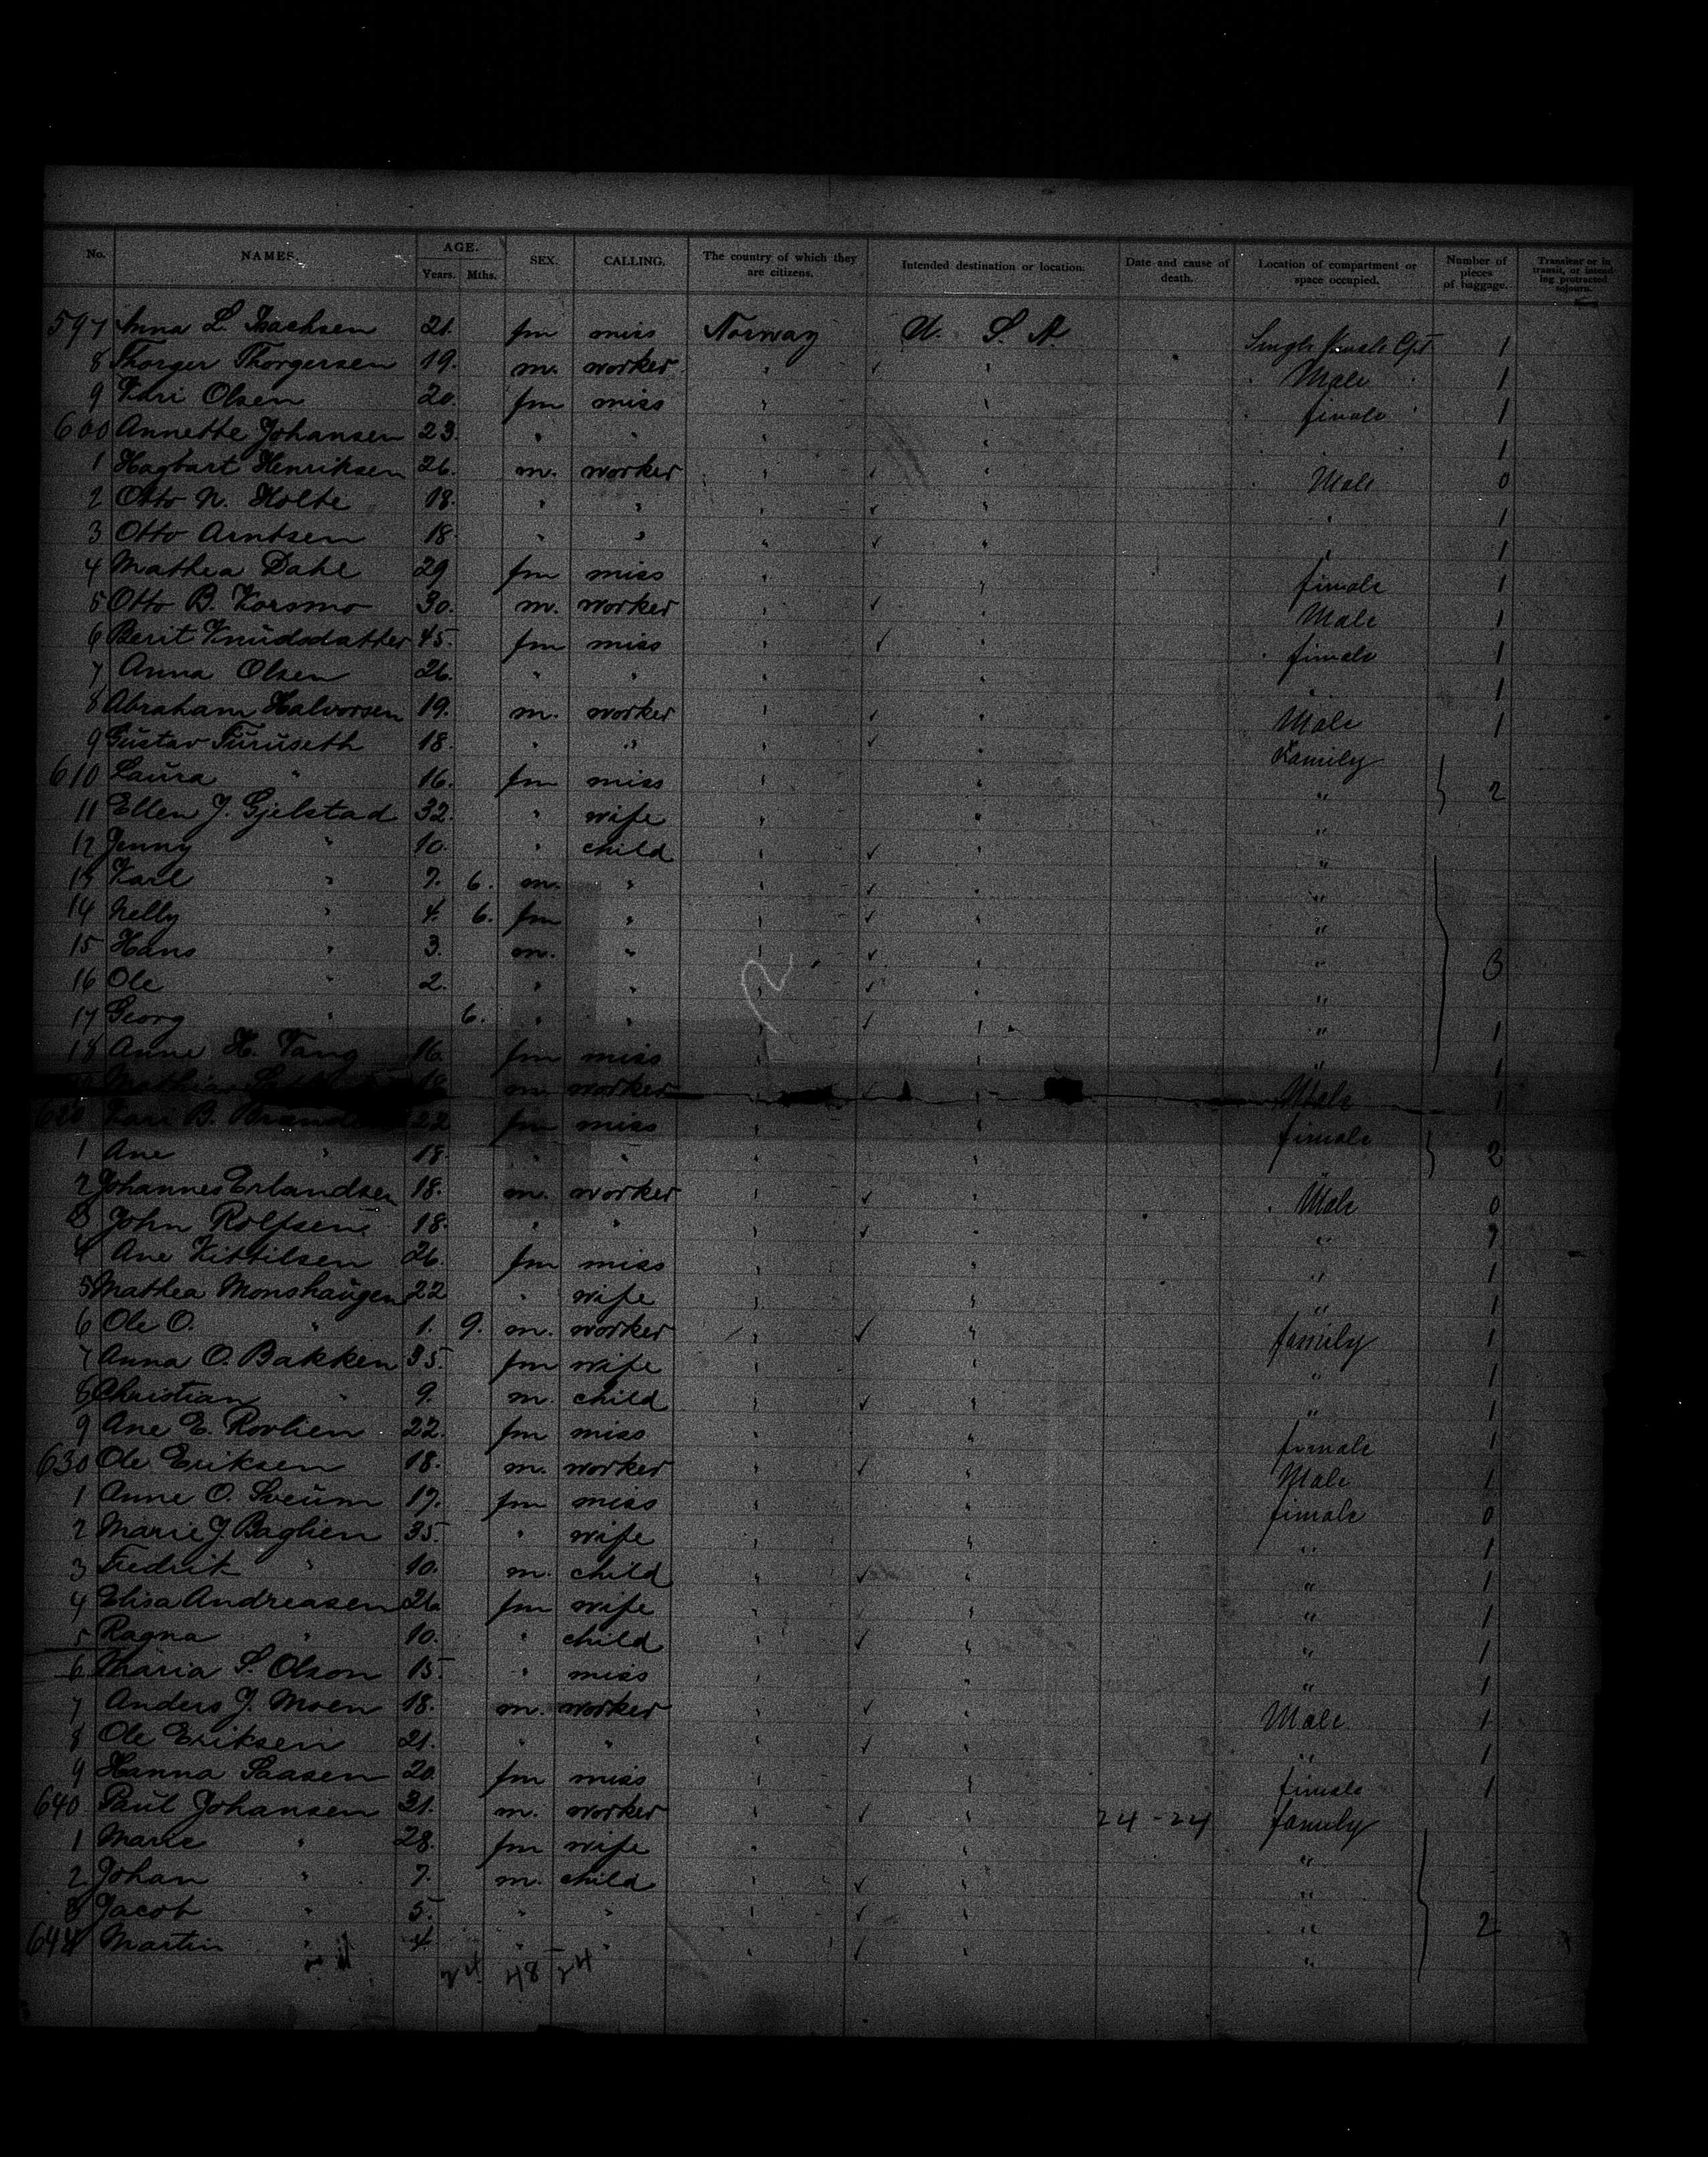 No. NAMES. AGE. Years. Mths. SEX. CALLING. The country of which they are citizens. Intended destination or location. Date and cause of death. Location of compartment or space occupied. Number of pieces of baggage. Transient or in transit, or intending protracted sojourn.
597 Anna L. Isachsen 21. fm miss Norway U. S. A. Single female Cpt 1
8 Thorger Thorgersen 19. m. worker " ✓ " " Male " 1
9 Kari Olsen 20. fm miss " " " female " 1
600 Annette Johansen 23. " " " " " " 1
1 Hagbart Henriksen 26. m. worker " ✓ " " Male 0
2 Otto N. Holte 18. " " " ✓ " " 1
3 Otto Arntsen 18 " " " ✓ " " 1
4 Mathea Dahl 29 fm miss " " female 1
5 Otto B. Korsmo 30. m. worker " ✓ " Male 1
6 Berit Knudsdatter 45. fm miss " ✓ " " female 1
7 Anna Olsen 26. " " " " 1
8 Abraham Halvorsen 19. m. worker " ✓ " Male 1
9 Gustav Furuseth 18. " " " ✓ " Family
610 Laura " 16. fm miss " " " 2
11 Ellen J. Gjelstad 32. " wife " " "
12 Jenny " 10. " child " ✓ " "
13 Karl " 7. 6. m. " " ✓ " "
14 Nelly " 4. 6. fm " " ✓ " "
15 Hans " 3. m. " " ✓ " " 3
16 Ole " 2. " " " ✓ " "
17 Georg " 6. " " " ✓ " " 1
18 Anne H. Tang 16. fm miss " " " 1
m. worker ✓ " Male 1
620 Kari B. 22 fm miss " " female
1 Ane " 18. " " " " 2
2 Johannes Erlandsen 18. m. worker " ✓ " " Male 0
3 John Rolfsen 18. " " " ✓ " "
4 Ane Kittilsen 26. fm miss " " " 1
5 Mathea Monshaugen 22 " wife " " " 1
6 Ole O. " 1. 9. m. worker " ✓ " family 1
7 Anna O. Bakken 35. fm wife " " " 1
8 Christian " 9. m. child " ✓ " " 1
9 Ane E. Rovlien 22. fm miss " " female 1
630 Ole Eriksen 18. m. worker " ✓ " Male 1
1 Anne O. Sveum 17. fm miss " " female 0
2 Marie J. Baglien 35. " wife " " " 1
3 Fredrik " 10. m. child " ✓ " " 1
4 Elisa Andreasen 26 fm wife " " " 1
5 Ragna " 10. " child " ✓ " " 1
6 Maria S. Olson 15. " miss " " " 1
7 Anders J. Moen 18. m. worker " ✓ " Male 1
8 Ole Eriksen 21. " " " ✓ " " 1
9 Hanna Saasen 20. fm miss " " female 1
640 Paul Johansen 31. m. worker " ✓ " 24-24 family
1 Marie " 28. fm wife " " "
2 Johan " 7. m. child " ✓ " "
3 Jacob " 5. " " " ✓ " " 2
644 Martin " 4. " " " ✓ " "
24 48 24